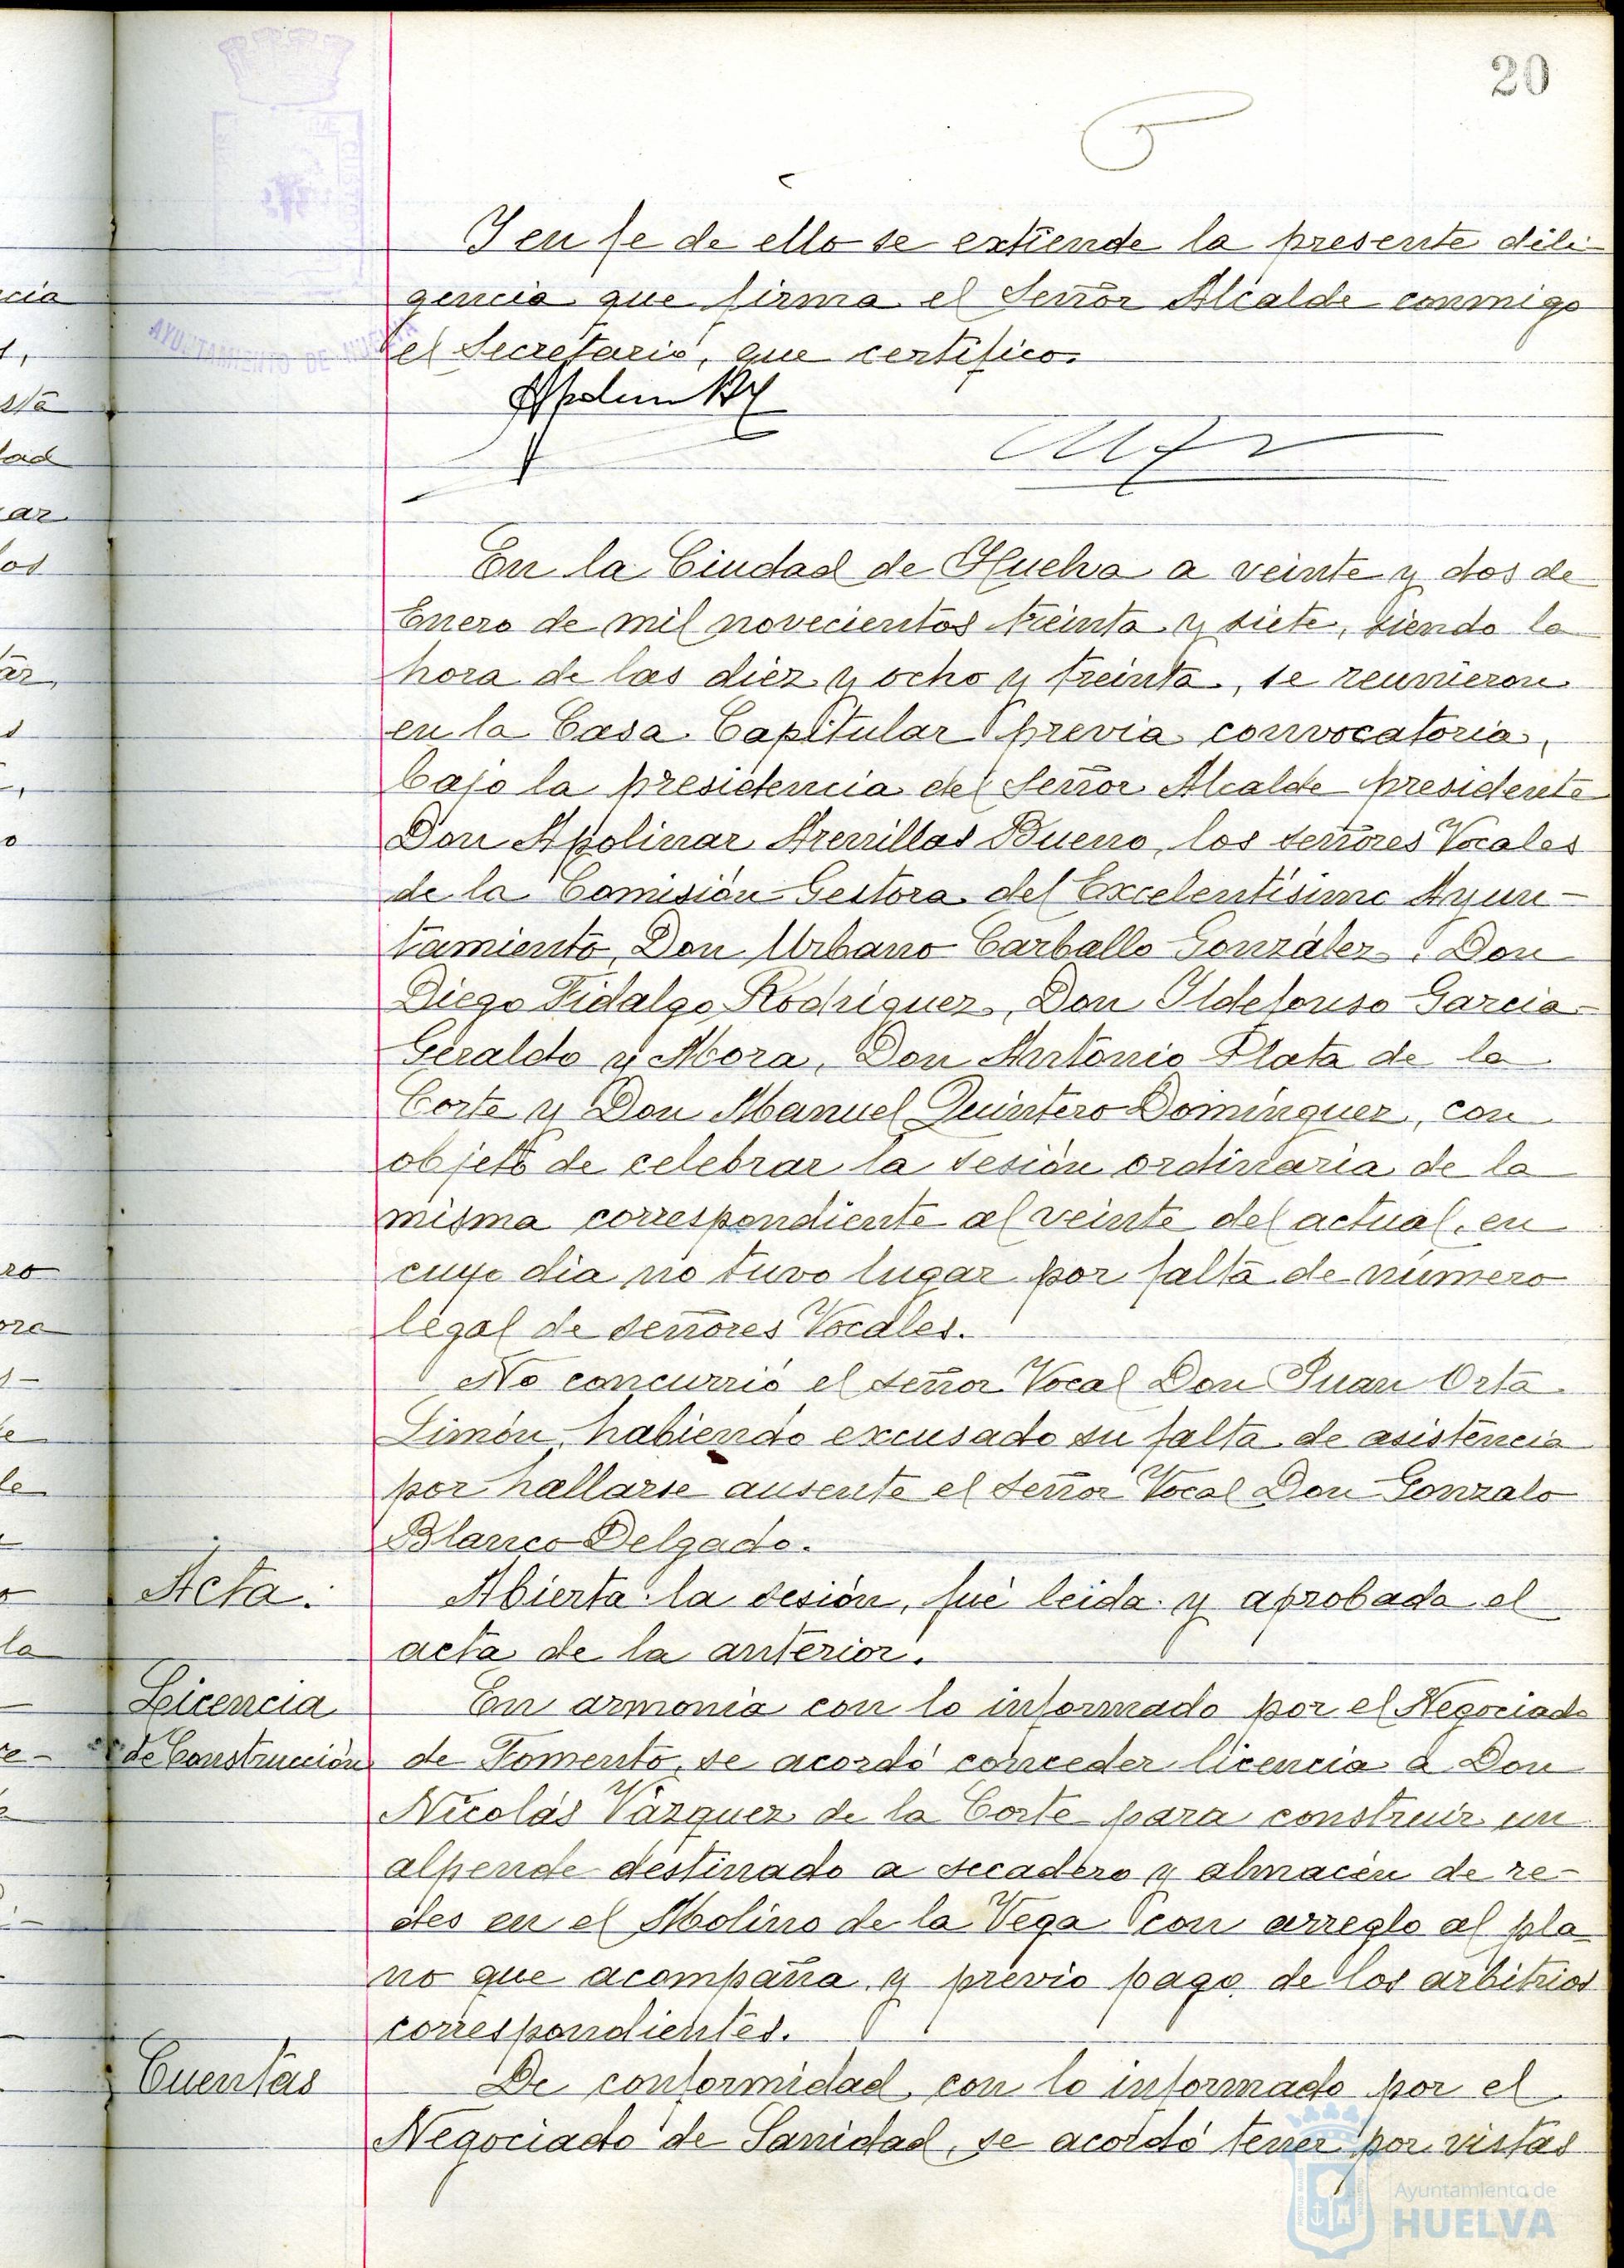 20
Y en fe de ello se extiende la presente dili-
gencia que firma el Señor Alcalde conmigo
el Secretario, que certifico.
AYUNTAMIENTO DE HUELVA
En la Ciudad de Huelva a veinte y dos de
Enero de mil novecientos treinta y siete, siendo la
hora de las diez y ocho y treinta, se reunieron
en la Casa Capitular previa convocatoria,
bajo la presidencia del Señor Alcalde presidente
Don Apolinar Arenillas Bueno, los señores Vocales
de la Comisión Gestora del Excelentísimo Ayun-
tamiento, Don Urbano Carballo González, Don
Diego Fidalgo Rodríguez, Don Ildefonso García-
Geraldo y Mora, Don Antonio Plata de la
Corte y Don Manuel Quintero Domínguez, con
objeto de celebrar la sesión ordinaria de la
misma correspondiente al veinte del actual, en
cuyo día no tuvo lugar por falta de número
legal de señores Vocales.
No concurrió el señor Vocal Don Juan Orta
Limón, habiendo excusado su falta de asistencia
por hallarse ausente el señor Vocal Don Gonzalo
Blanco Delgado.
Acta.
Abierta la sesión, fué leida y aprobada el
acta de la anterior.
Licencia
de Construcción
En armonía con lo informado por el Negociado
de Fomento, se acordó conceder licencia a Don
Nicolás Vázquez de la Corte para construir un
alpende destinado a secadero y almacén de re-
des en el Molino de la Vega con arreglo al pla
no que acompaña y previo pago de los arbitrios
correspondientes.
Cuentas
De conformidad con lo informado por el
Negociado de Sanidad, se acordó tener por vistas
Ayuntamiento de
HUELVA